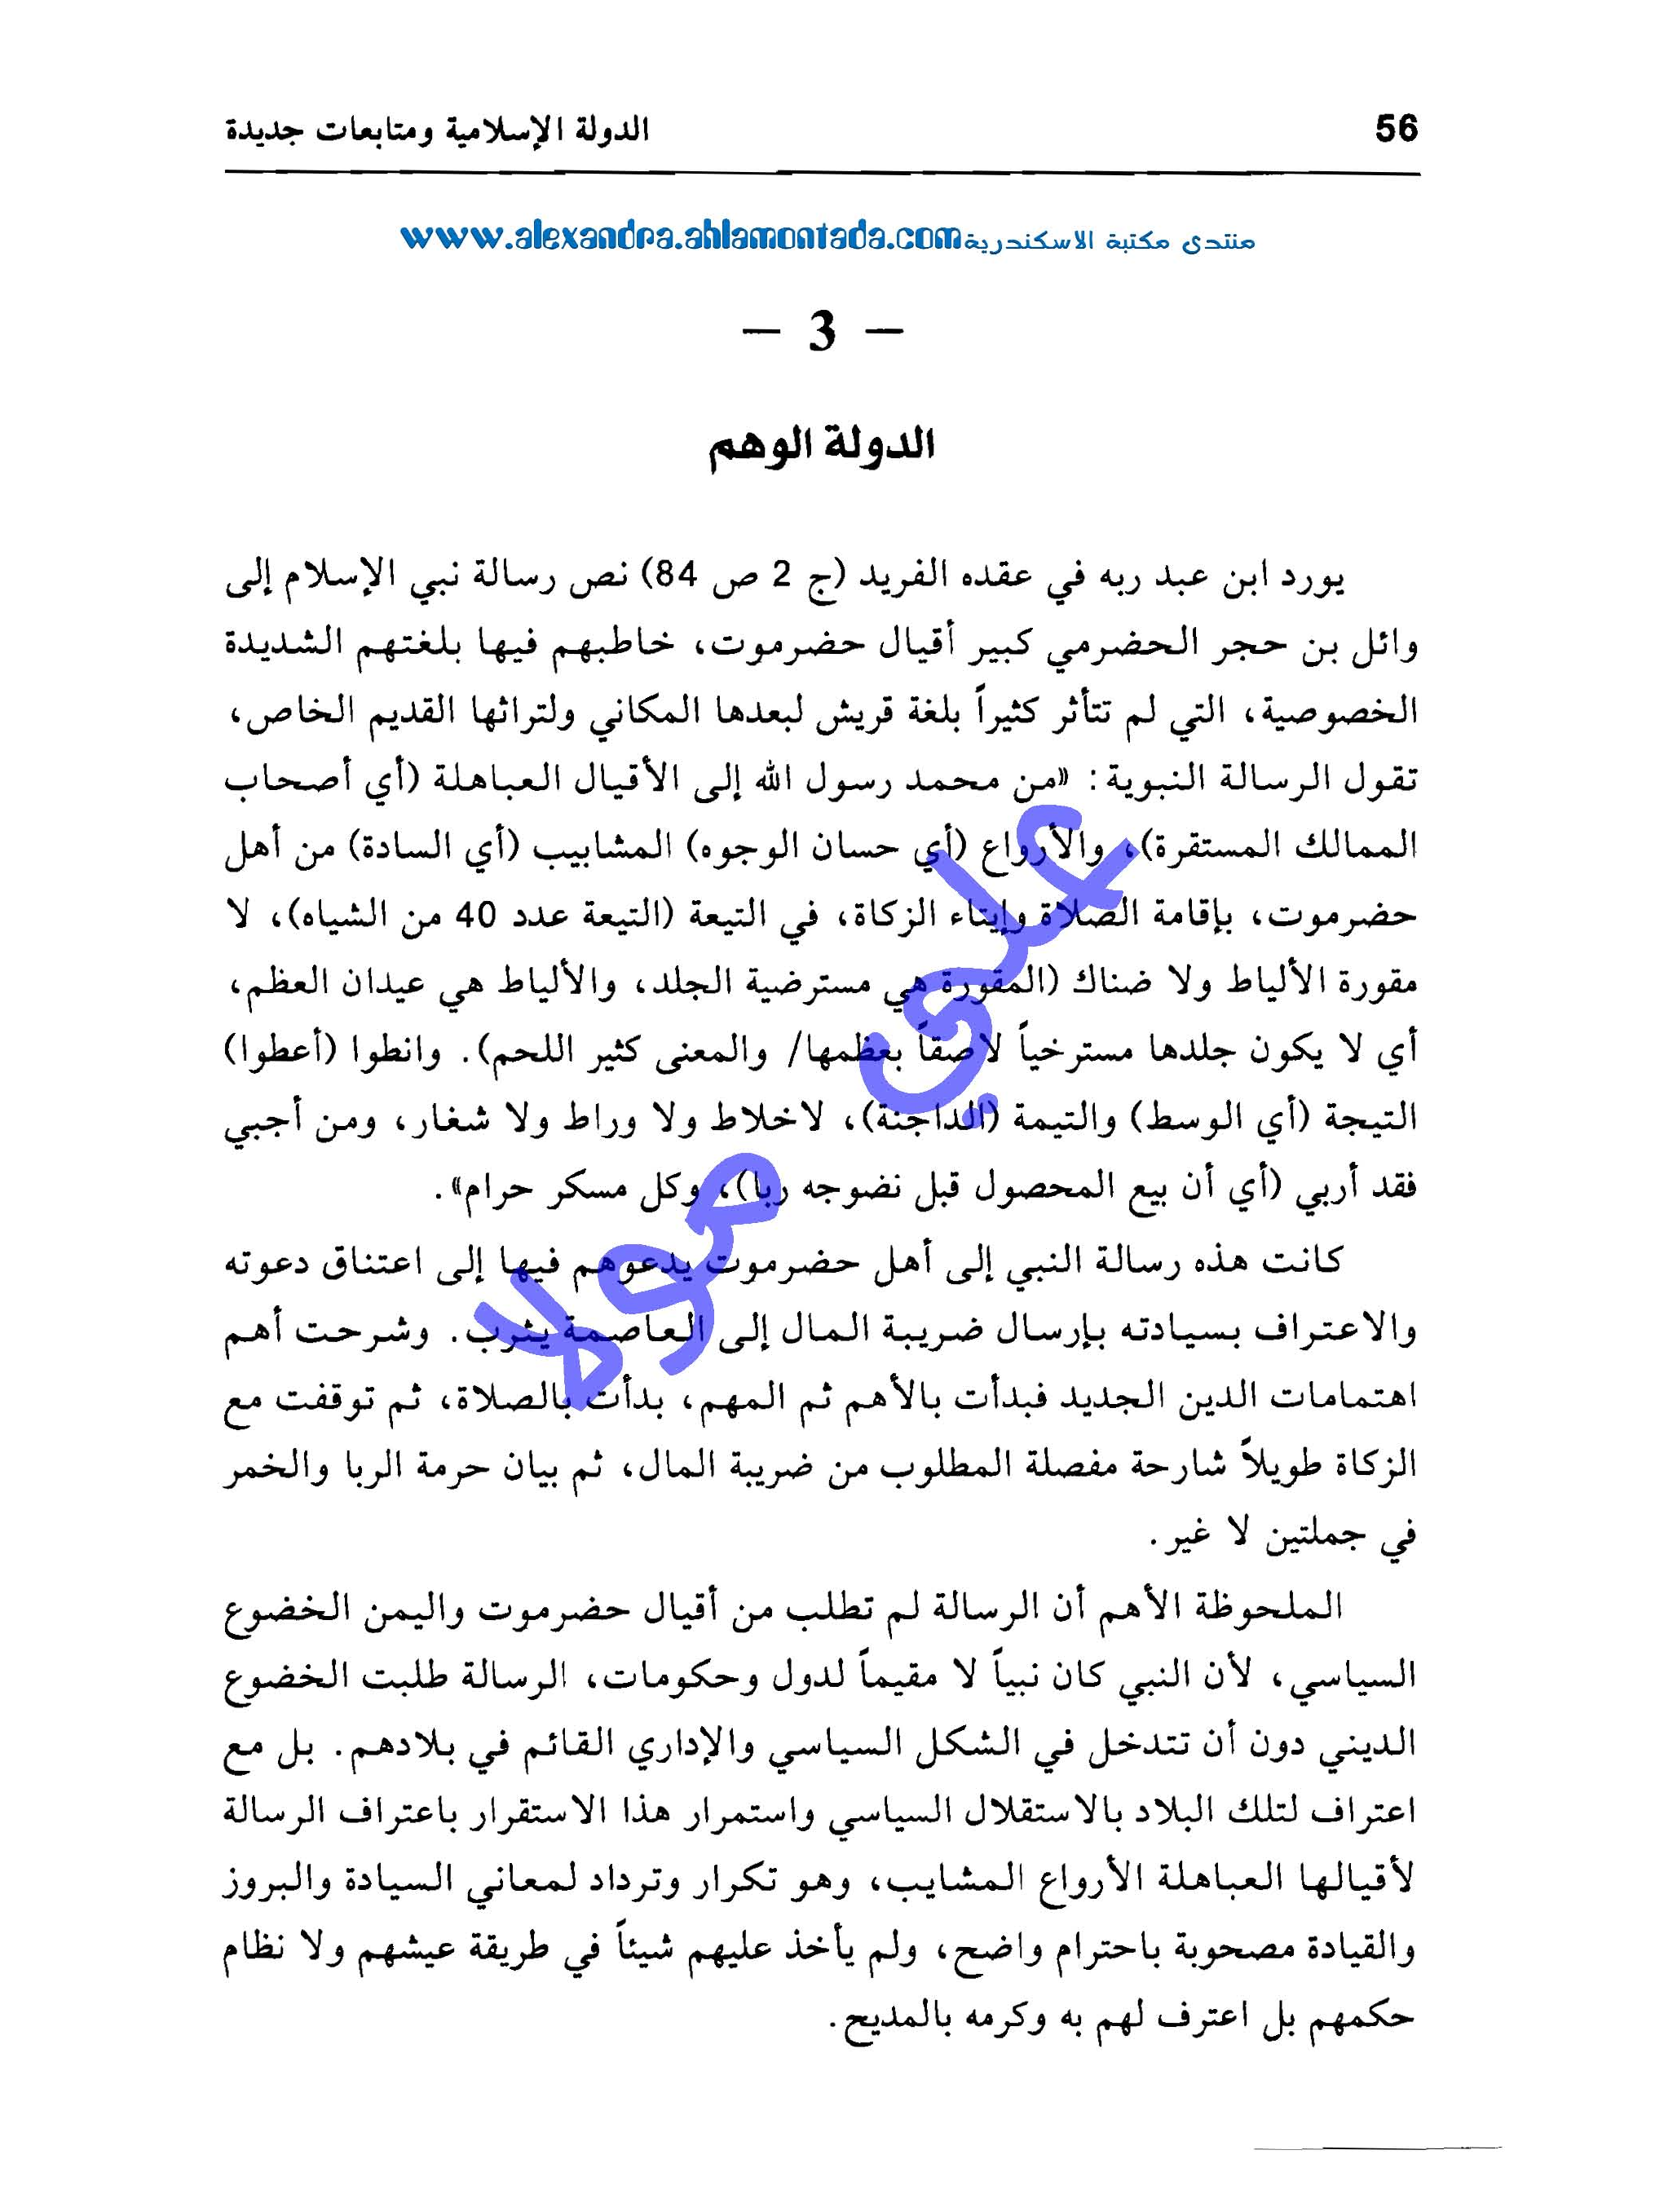 56
الدولة الإسلامية ومتابعات جديدة
منتدى مكتبة الاسكندرية www.alexandra.ahlamontada.com
– 3 –
الدولة الوهم
يورد ابن عبد ربه في عقده الفريد (ج 2 ص 84) نص رسالة نبي الإسلام إلى
وائل بن حجر الحضرمي كبير أقيال حضرموت، خاطبهم فيها بلغتهم الشديدة
الخصوصية، التي لم تتأثر كثيراً بلغة قريش لبعدها المكاني ولتراثها القديم الخاص،
تقول الرسالة النبوية: «من محمد رسول الله إلى الأقيال العباهلة (أي أصحاب
الممالك المستقرة)، والأرواع (أي حسان الوجوه) المشابيب (أي السادة) من أهل
حضرموت، بإقامة الصلاة وإيتاء الزكاة، في التيعة (التيعة عدد 40 من الشياه)، لا
مقورة الألياط ولا ضناك (المقورة هي مسترضية الجلد، والألياط هي عيدان العظم،
أي لا يكون جلدها مسترخياً لاصقاً بعظمها/ والمعنى كثير اللحم). وانطوا (أعطوا)
التيجة (أي الوسط) والتيمة (الداجنة)، لاخلاط ولا وراط ولا شغار، ومن أجبي
فقد أربي (أي أن بيع المحصول قبل نضوجه ربا)، وكل مسكر حرام».
كانت هذه رسالة النبي إلى أهل حضرموت يدعوهم فيها إلى اعتناق دعوته
والاعتراف بسيادته بإرسال ضريبة المال إلى العاصمة يثرب. وشرحت أهم
اهتمامات الدين الجديد فبدأت بالأهم ثم المهم، بدأت بالصلاة، ثم توقفت مع
الزكاة طويلاً شارحة مفصلة المطلوب من ضريبة المال، ثم بيان حرمة الربا والخمر
في جملتين لا غير.
الملحوظة الأهم أن الرسالة لم تطلب من أقيال حضرموت واليمن الخضوع
السياسي، لأن النبي كان نبياً لا مقيماً لدول وحكومات، الرسالة طلبت الخضوع
الديني دون أن تتدخل في الشكل السياسي والإداري القائم في بلادهم. بل مع
اعتراف لتلك البلاد بالاستقلال السياسي واستمرار هذا الاستقرار باعتراف الرسالة
لأقيالها العباهلة الأرواع المشايب، وهو تكرار وترداد لمعاني السيادة والبروز
والقيادة مصحوبة باحترام واضح، ولم يأخذ عليهم شيئاً في طريقة عيشهم ولا نظام
حكمهم بل اعترف لهم به وكرمه بالمديح.
علي مولا